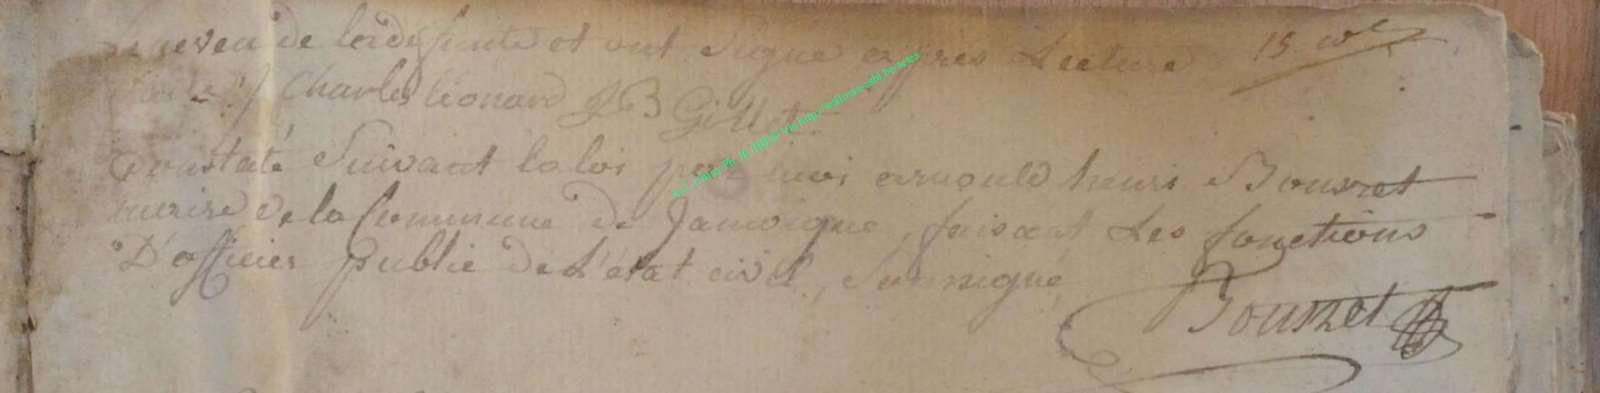 neveu de la defunte et ont Signé après Lecture 15 col
faite ./. Charles léonard J B Gillet
Constaté Suivant la loi par moi arnould henri Bourzet
mairie de la Commune de Jamoigne, faisant les fonctions
D'officier public de L'état civil, Soussigné
Bourzet